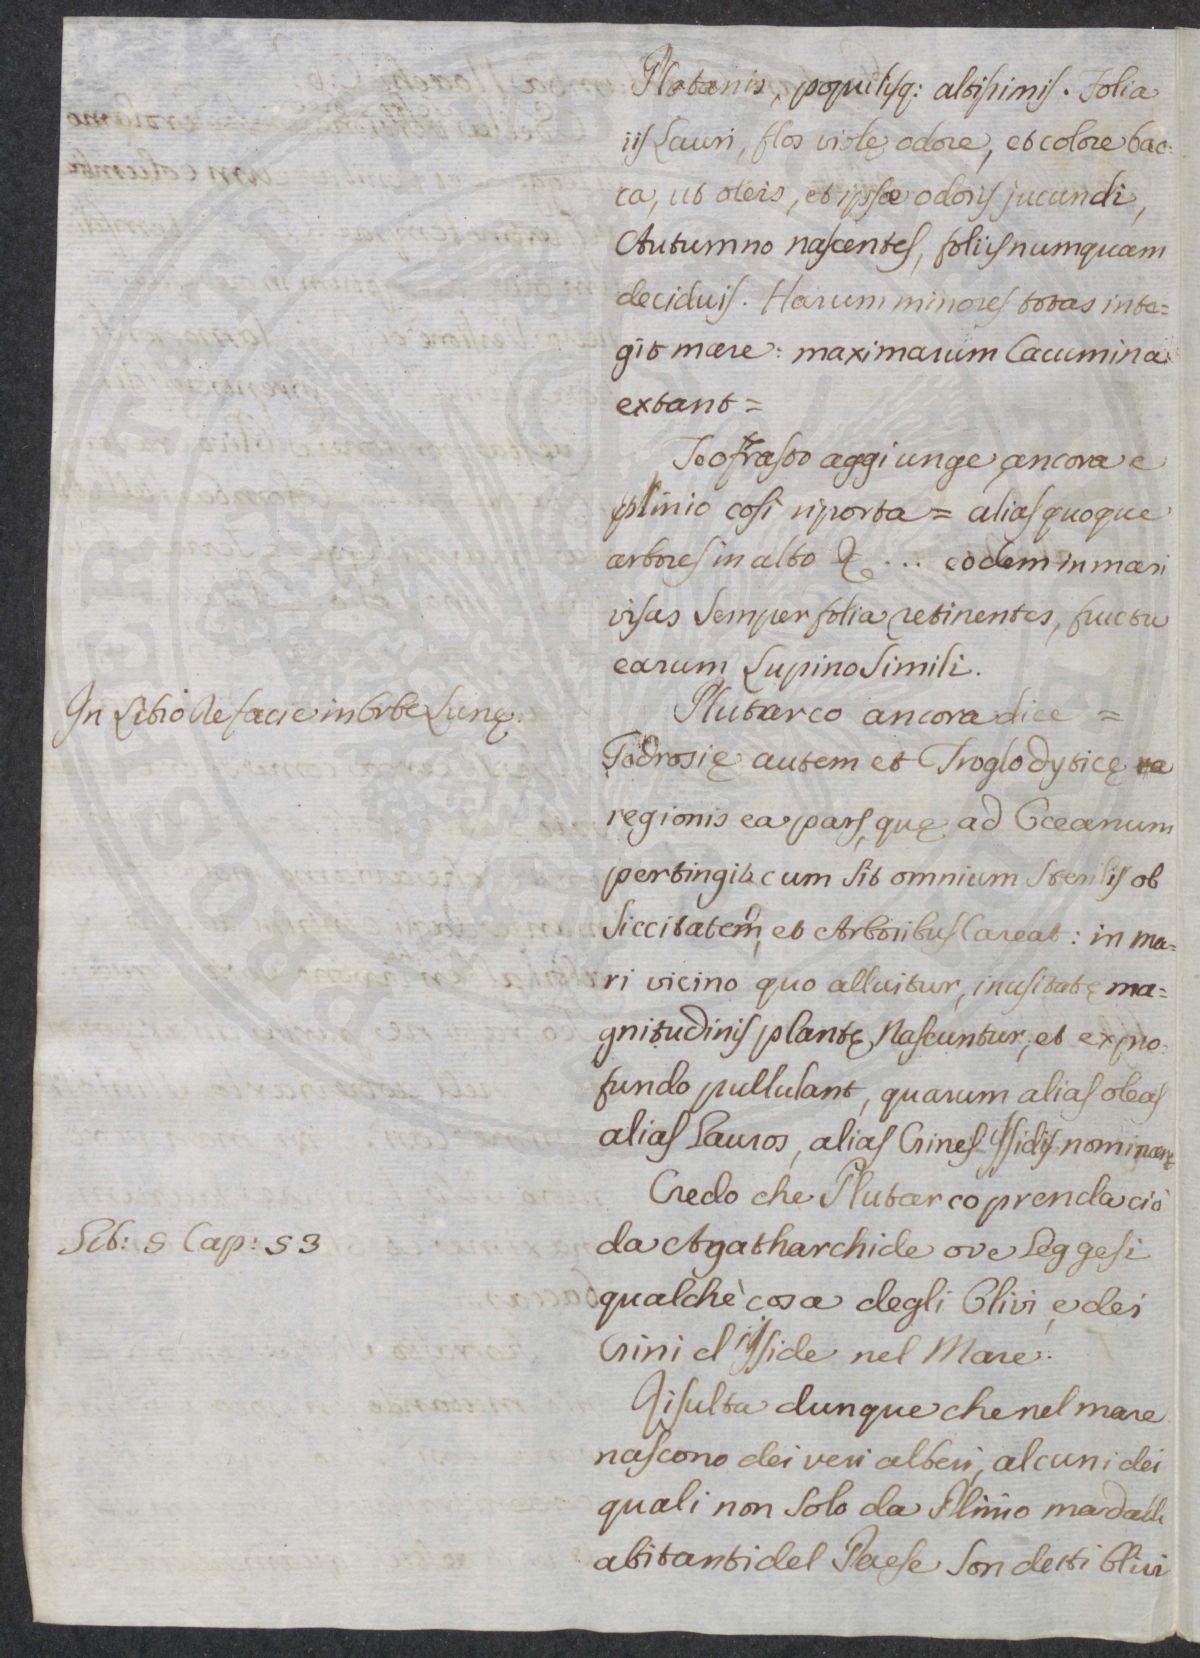 Platanis, populisq: altissimis. Folia
iis Lauri, flos violę odore, et colore bac=
ca, ut oleis, et ipsæ odoris jucundi,
Autumno nascentes, foliis numquam
deciduis. Harum minores totas inte=
git mare: maximarum Cacumina
extant =
Teofrasto aggiunge ancora e
plinio così riporta = alias quoque
arbores in alto &c ... eodem in mari
visas semper folia retinentes, fructu
earum Lupino simili.
In Libro de facie in Orbe Lunę.
Plutarco ancora dice =
Godrosię autem et Troglodyticę
regionis ea pars, quę ad Oceanum
pertingit cum sit omnium sterilis ob
siccitatem, et Arboribus Careat: in ma=
ri vicino quo alluitur, inusitatę ma=
gnitudinis plantę Nascuntur, et ex pro=
fundo pullulant, quarum alias oleas
alias Lauros, alias Crines Isidis nominant
Credo che Plutarco prenda ciò
Lib: 5 Cap: 53
da Agatharchide ove Leggesi
qualchè cosa degli Olivi, e dei
Crini d'Iside nel Mare.
Risulta dunque che nel mare
nascono dei veri alberi, alcuni dei
quali non solo da Plinio ma dalli
abitanti del Paese son detti Olivi